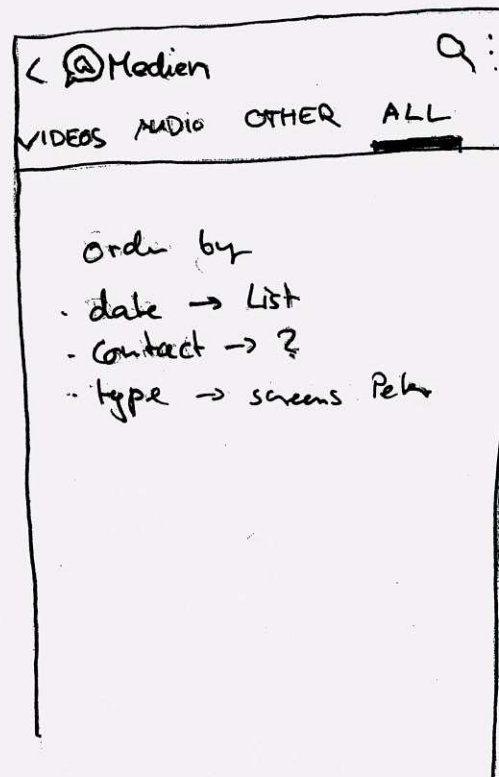 < @ Medien
VIDEOS AUDIO OTHER ALL
order by
- date → List
- contact → ?
- type → screens Peter